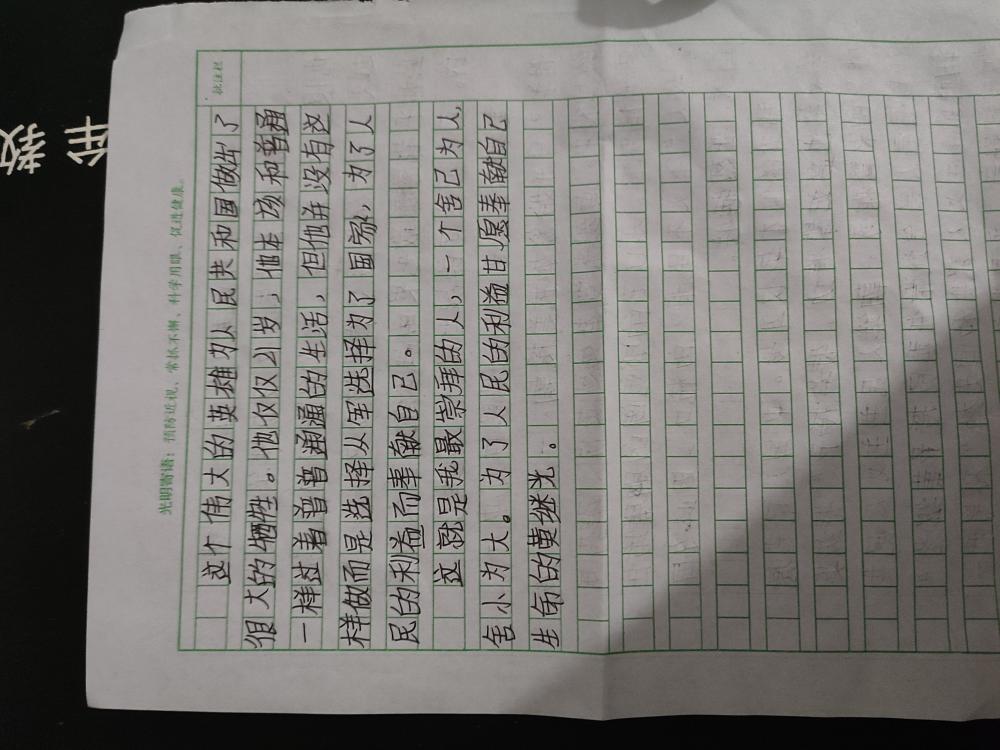 教
年
光明寄语：预防近视、常抓不懈、科学用眼、促进健康。
批注栏
这个伟大的英雄为人民共和国做出了
很大的牺牲。他仅仅21岁，他本该和普通
一样过着普普通通的生活，但他并没有这
样做而是选择从军选择为了国家，为了人
民的利益而奉献自己。
这就是我最崇拜的人，一个舍己为人，
舍小为大。为了人民的利益甘愿奉献自己
生命的黄继光。